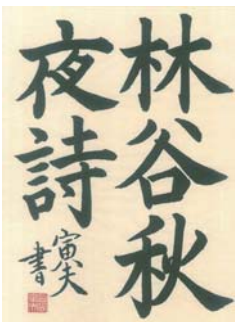 林谷秋
夜詩
寅夫
書